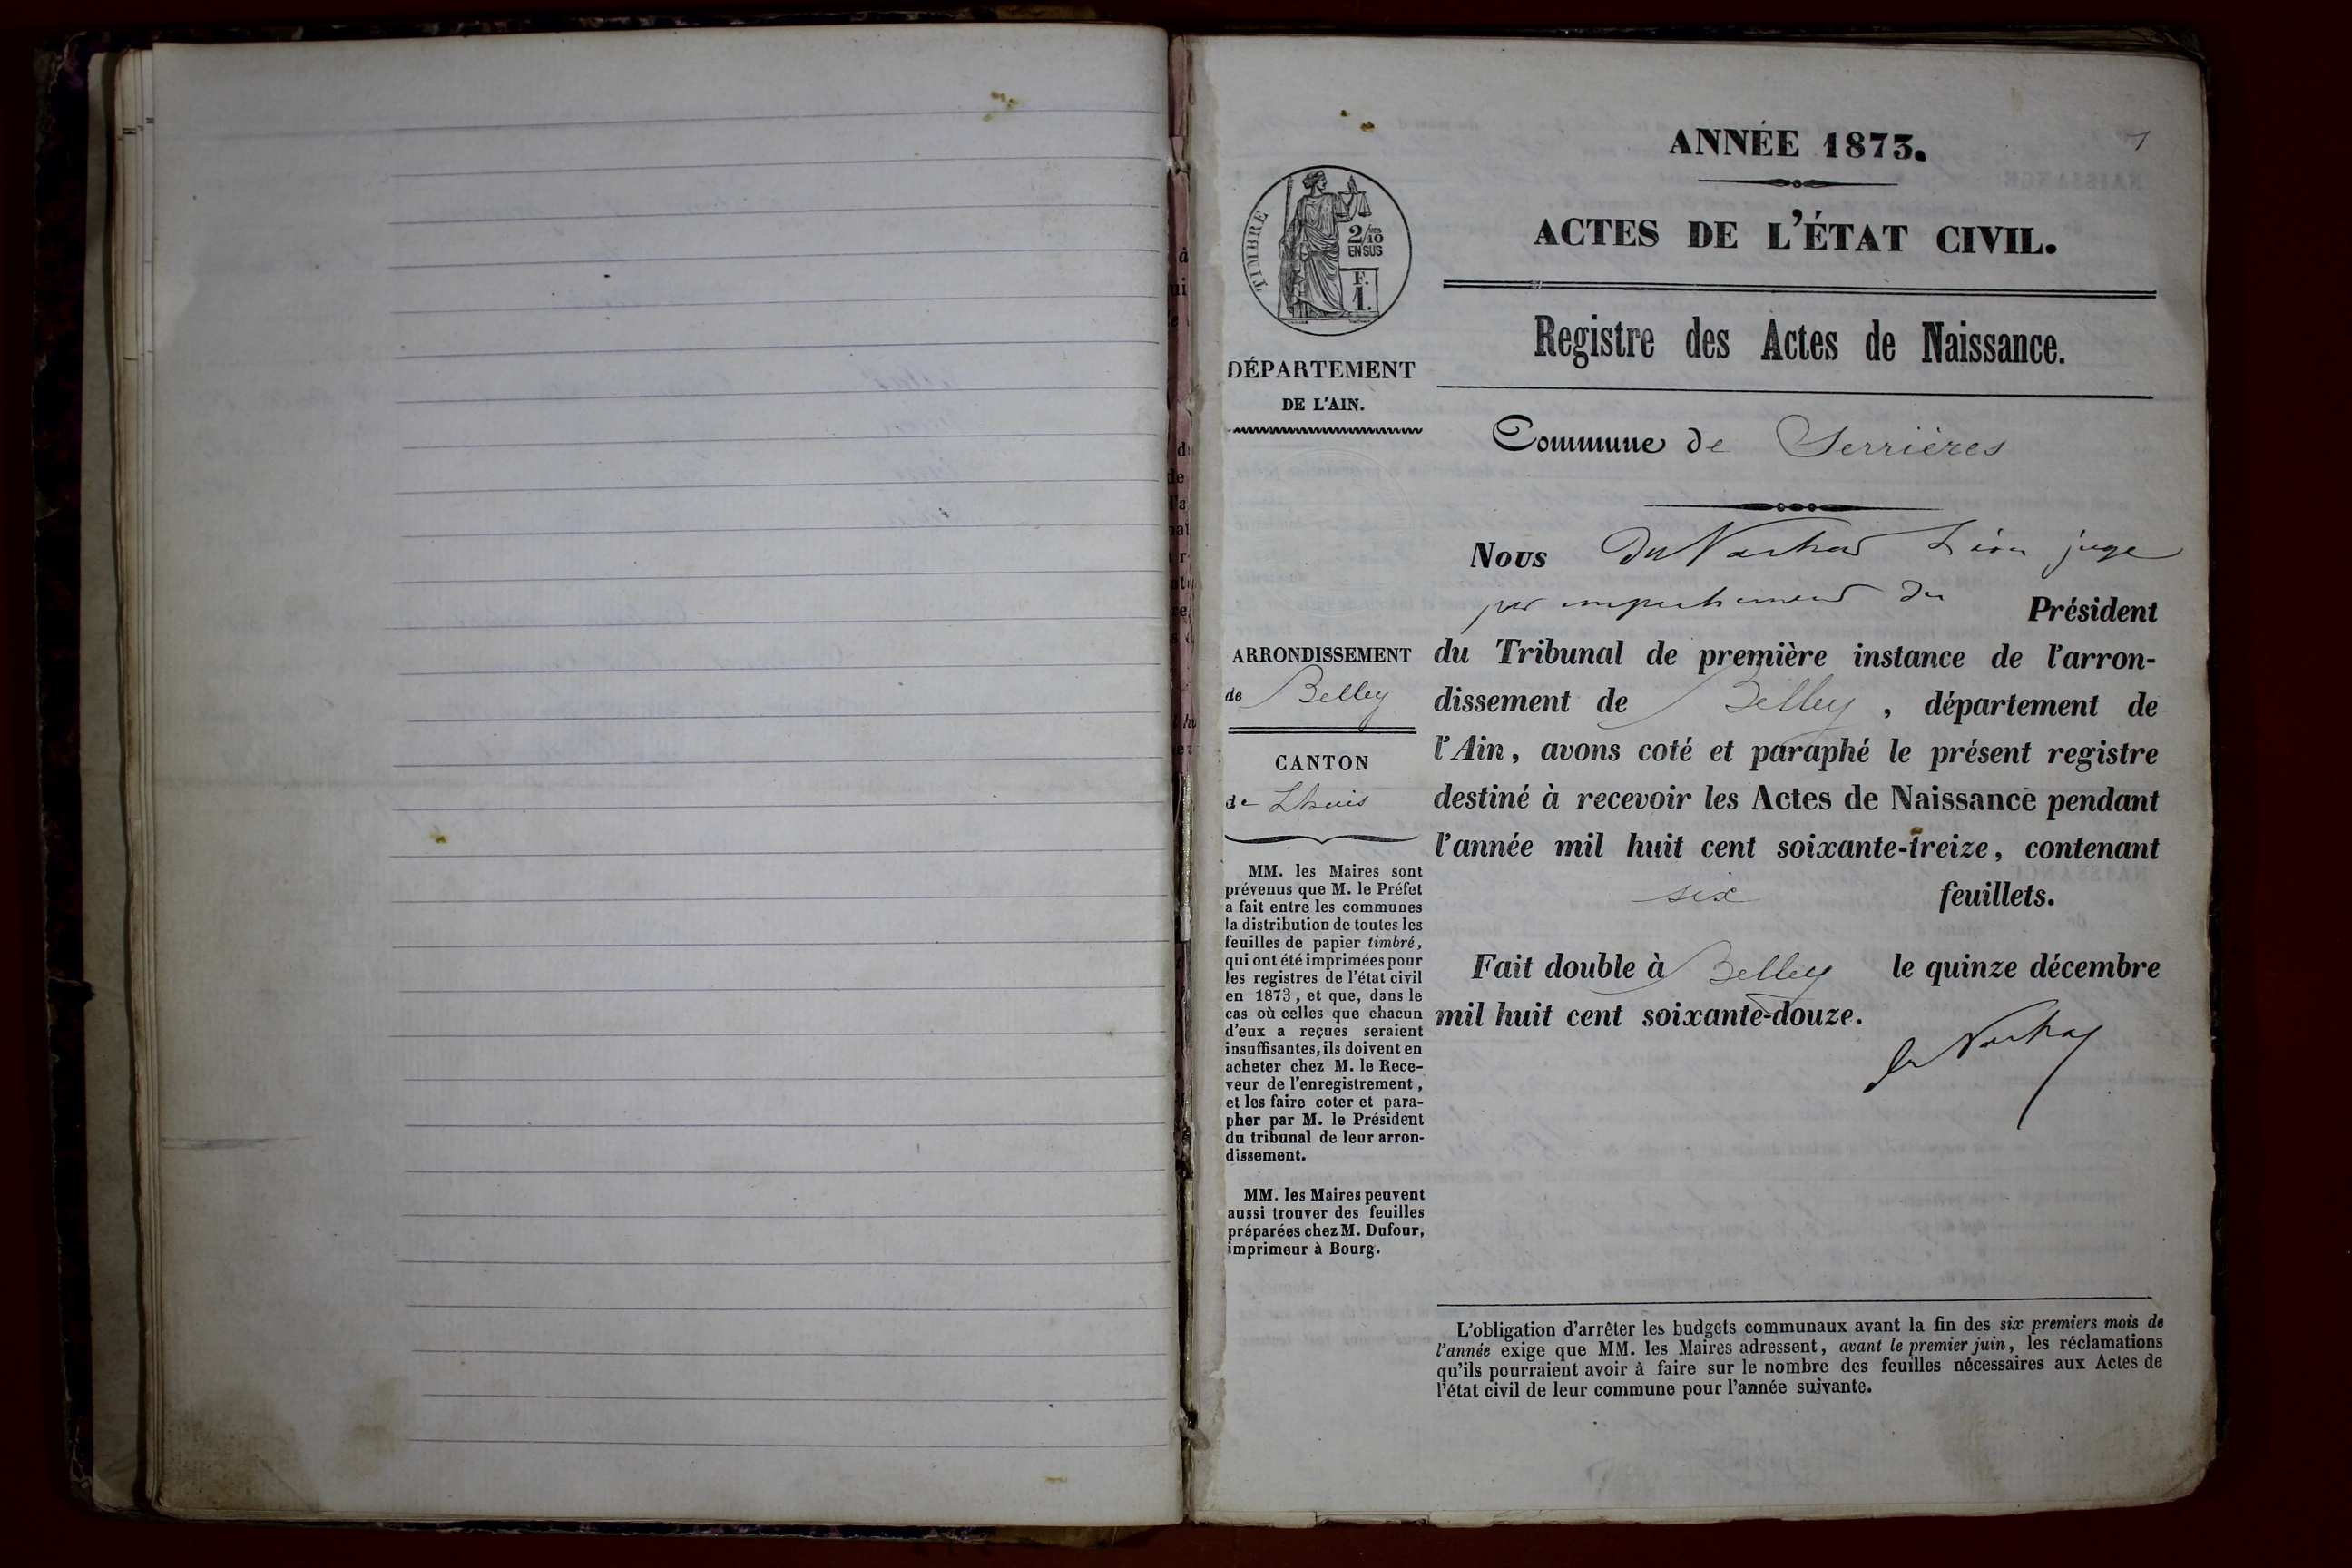 ANNÉE 1873.
1
ACTES DE L'ÉTAT CIVIL.
Registre des Actes de Naissance.
Commune de Serrières
TIMBRE
2/10
EN SUS
F.
1.
DÉPARTEMENT
DE L'AIN.
ARRONDISSEMENT
de Belley
CANTON
de Lhuis
MM. les Maires sont
prévenus que M. le Préfet
a fait entre les communes
la distribution de toutes les
feuilles de papier timbré,
qui ont été imprimées pour
les registres de l'état civil
en 1873, et que, dans le
cas où celles que chacun
d'eux a reçues seraient
insuffisantes, ils doivent en
acheter chez M. le Rece-
veur de l'enregistrement,
et les faire coter et para-
pher par M. le Président
du tribunal de leur arron-
dissement.
MM. les Maires peuvent
aussi trouver des feuilles
préparées chez M. Dufour,
imprimeur à Bourg.
Nous Léon juge
par empêchement du Président
du Tribunal de première instance de l'arron-
dissement de Belley, département de
l'Ain, avons coté et paraphé le présent registre
destiné à recevoir les Actes de Naissance pendant
l'année mil huit cent soixante-treize, contenant
six feuillets.
Fait double à Belley le quinze décembre
mil huit cent soixante-douze.
L'obligation d'arrêter les budgets communaux avant la fin des six premiers mois de
l'année exige que MM. les Maires adressent, avant le premier juin, les réclamations
qu'ils pourraient avoir à faire sur le nombre des feuilles nécessaires aux Actes de
l'état civil de leur commune pour l'année suivante.